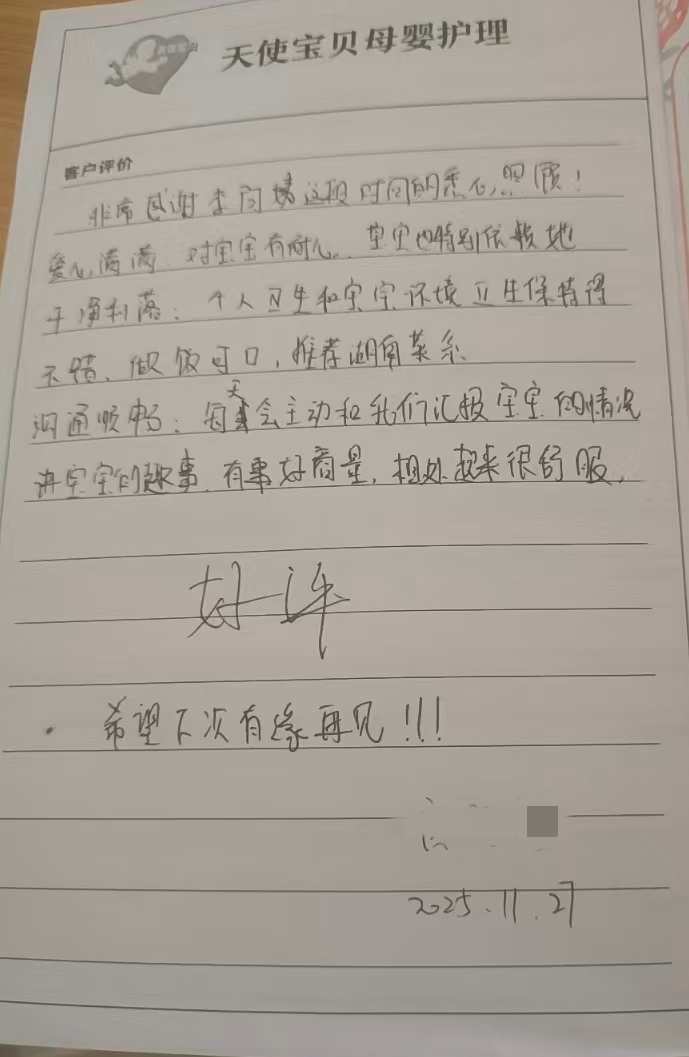 天使宝贝母婴护理
客户评价
非常感谢李阿姨这段时间的悉心照顾!
爱心满满 对宝宝有耐心. 宝宝也特别依赖她
干净利落: 个人卫生和宝宝环境卫生保持得
不错、做饭可口, 推荐湖南菜系
沟通顺畅: 每天会主动和我们汇报宝宝的情况
讲宝宝的趣事. 有事好商量, 相处起来很舒服,
好评
· 希望下次有缘再见!!!
2025.11.27